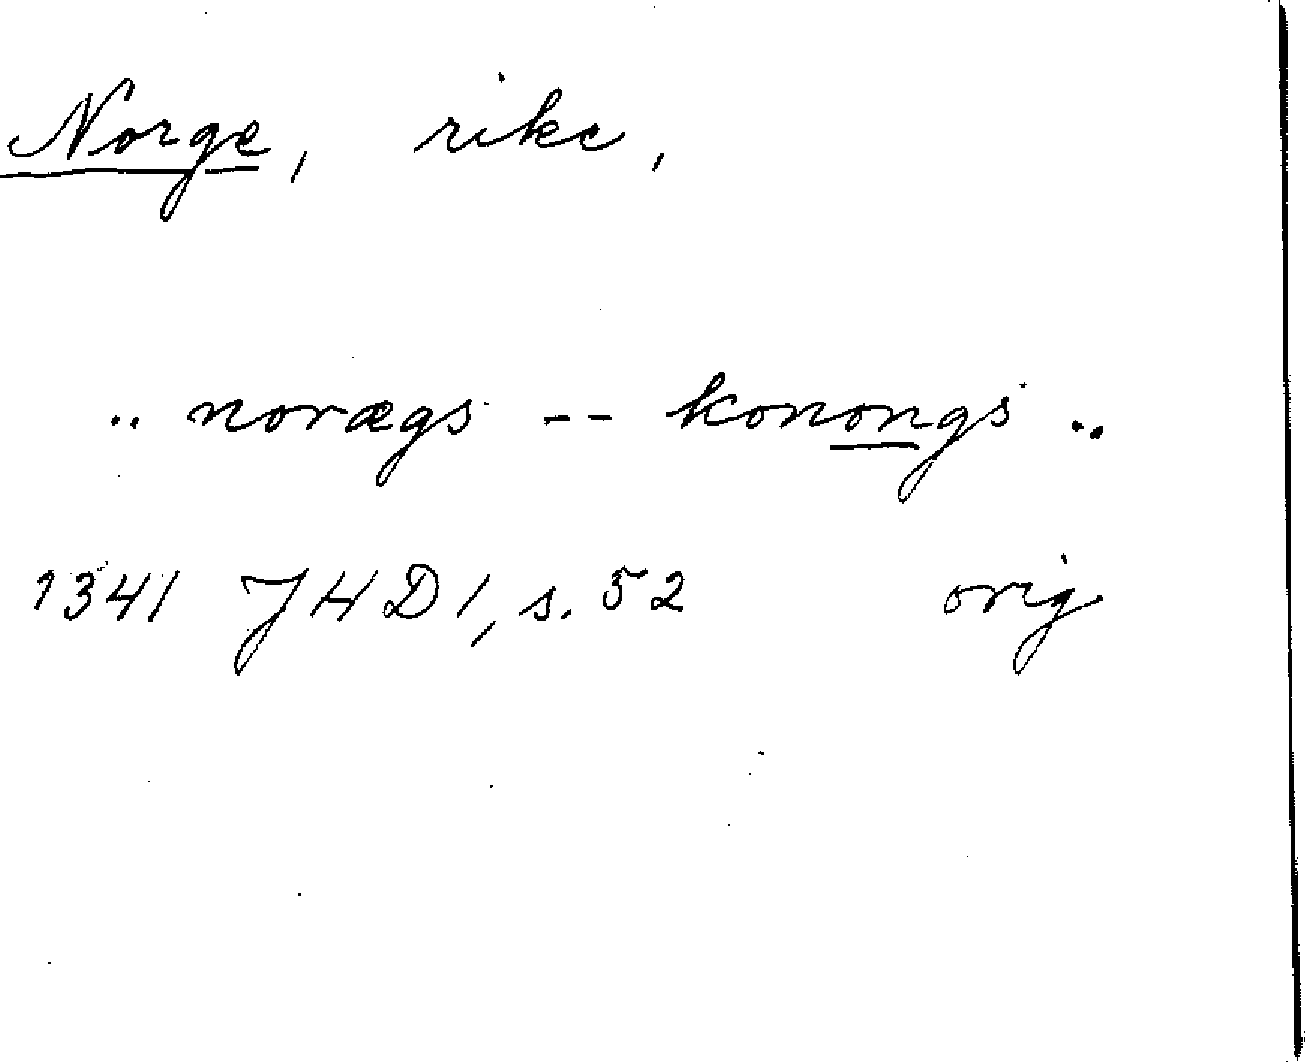 Norge, rike,
.. norægs -- konongs ..
1341 JHD 1, s. 52 orig.